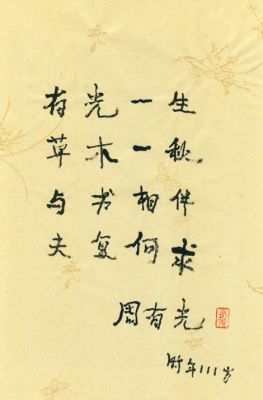 有光一生
草木一秋
与书相伴
夫复何求
周有光
时年111岁